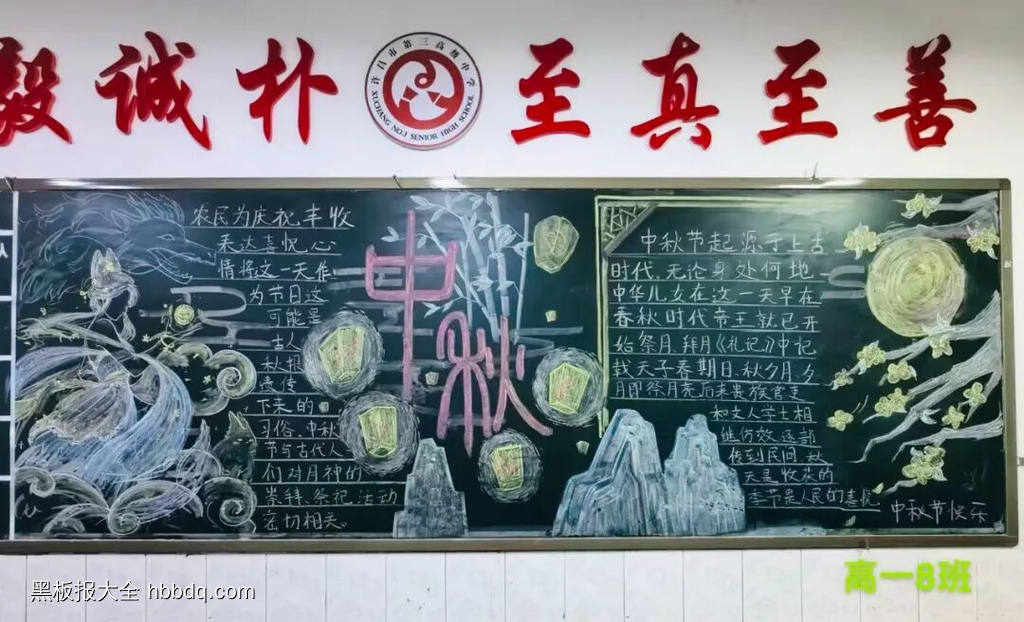 毅诚朴
许昌市第三高级中学
XUCHANG NO.3 SENIOR HIGH SCHOOL
至真至善
农民为庆祝丰收
表达喜悦心
情将这一天作
为节日这
可能是
古人
秋报
遗传
下来的
习俗.中秋
节与古代人
们对月神的
崇拜.祭祀.活动
密切相关
中秋
中秋节起源于上古
时代.无论身处何地
中华儿女在这一天早在
春秋时代帝王就已开
始祭月.拜月《礼记》中记
载天子春期日.秋夕月.夕
月即祭月亮后来贵族官吏
和文人学士相
继仿效.逐部
传到民间.秋
天是收获的
季节是人民的喜悦
中秋节快乐
高一8班
黑板报大全 hbbdq.com